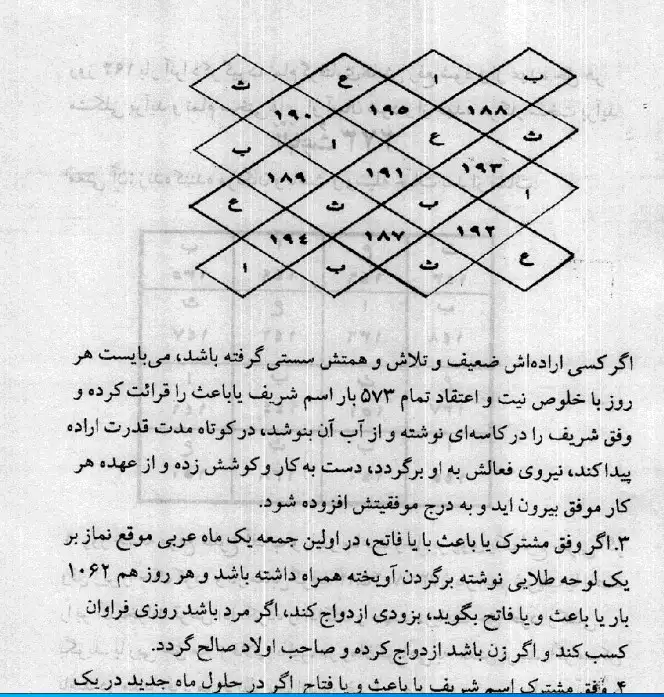 ث ع ب
۱۹۰ ۱۹۵ ۱۸۸
ب ا ع ث
۱۸۹ ۱۹۱ ۱۹۳
ع ث ب ا
۱۹۴ ۱۸۷ ۱۹۲
ا ب ث ع
اگر کسی اراده‌اش ضعیف و تلاش و همتش سستی گرفته باشد، می‌بایست هر
روز با خلوص نیت و اعتقاد تمام ۵۷۳ بار اسم شریف یاباعث را قرائت کرده و
وفق شریف را در کاسه‌ای نوشته و از آب آن بنوشد، در کوتاه مدت قدرت اراده
پیدا کند، نیروی فعالش به او برگردد، دست به کار و کوشش زده و از عهده هر
کار موفق بیرون اید و به درج موفقیتش افزوده شود.
۳. اگر وفق مشترک یا باعث با یا فاتح، در اولین جمعه یک ماه عربی موقع نماز بر
یک لوحه طلایی نوشته برگردن آویخته همراه داشته باشد و هر روز هم ۱۰۶۲
بار یا باعث و یا فاتح بگوید، بزودی ازدواج کند، اگر مرد باشد روزی فراوان
کسب کند و اگر زن باشد ازدواج کرده و صاحب اولاد صالح گردد.
۴. وفق مشترک اسم شریف یا باعث و یا فتاح اگر در حلول ماه جدید در یک